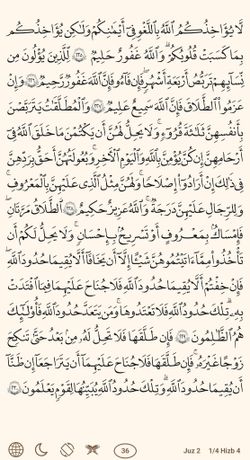 لَّا يُؤَاخِذُكُمُ ٱللَّهُ بِٱللَّغْوِ فِىٓ أَيْمَـٰنِكُمْ وَلَـٰكِن يُؤَاخِذُكُم
بِمَا كَسَبَتْ قُلُوبُكُمْ ۗ وَٱللَّهُ غَفُورٌ حَلِيمٌ ٢٢٥ لِّلَّذِينَ يُؤْلُونَ مِن
نِّسَآئِهِمْ تَرَبُّصُ أَرْبَعَةِ أَشْهُرٍ ۖ فَإِن فَآءُو فَإِنَّ ٱللَّهَ غَفُورٌ رَّحِيمٌ ٢٢٦ وَإِنْ
عَزَمُوا۟ ٱلطَّلَـٰقَ فَإِنَّ ٱللَّهَ سَمِيعٌ عَلِيمٌ ٢٢٧ وَٱلْمُطَلَّقَـٰتُ يَتَرَبَّصْنَ
بِأَنفُسِهِنَّ ثَلَـٰثَةَ قُرُوٓءٍ ۚ وَلَا يَحِلُّ لَهُنَّ أَن يَكْتُمْنَ مَا خَلَقَ ٱللَّهُ فِىٓ
أَرْحَامِهِنَّ إِن كُنَّ يُؤْمِنَّ بِٱللَّهِ وَٱلْيَوْمِ ٱلْـَٔاخِرِ ۚ وَبُعُولَتُهُنَّ أَحَقُّ بِرَدِّهِنَّ
فِى ذَٰلِكَ إِنْ أَرَادُوٓا۟ إِصْلَـٰحًا ۚ وَلَهُنَّ مِثْلُ ٱلَّذِى عَلَيْهِنَّ بِٱلْمَعْرُوفِ ۚ
وَلِلرِّجَالِ عَلَيْهِنَّ دَرَجَةٌ ۗ وَٱللَّهُ عَزِيزٌ حَكِيمٌ ٢٢٨ ٱلطَّلَـٰقُ مَرَّتَانِ ۖ
فَإِمْسَاكٌۢ بِمَعْرُوفٍ أَوْ تَسْرِيحٌۢ بِإِحْسَـٰنٍ ۗ وَلَا يَحِلُّ لَكُمْ أَن
تَأْخُذُوا۟ مِمَّآ ءَاتَيْتُمُوهُنَّ شَيْـًٔا إِلَّآ أَن يَخَافَآ أَلَّا يُقِيمَا حُدُودَ ٱللَّهِ ۖ
فَإِنْ خِفْتُمْ أَلَّا يُقِيمَا حُدُودَ ٱللَّهِ فَلَا جُنَاحَ عَلَيْهِمَا فِيمَا ٱفْتَدَتْ
بِهِۦ ۗ تِلْكَ حُدُودُ ٱللَّهِ فَلَا تَعْتَدُوهَا ۚ وَمَن يَتَعَدَّ حُدُودَ ٱللَّهِ فَأُو۟لَـٰٓئِكَ
هُمُ ٱلظَّـٰلِمُونَ ٢٢٩ فَإِن طَلَّقَهَا فَلَا تَحِلُّ لَهُۥ مِنۢ بَعْدُ حَتَّىٰ تَنكِحَ
زَوْجًا غَيْرَهُۥ ۗ فَإِن طَلَّقَهَا فَلَا جُنَاحَ عَلَيْهِمَآ أَن يَتَرَاجَعَآ إِن ظَنَّآ
أَن يُقِيمَا حُدُودَ ٱللَّهِ ۗ وَتِلْكَ حُدُودُ ٱللَّهِ يُبَيِّنُهَا لِقَوْمٍ يَعْلَمُونَ ٢٣٠
36 Juz 2 1/4 Hizb 4